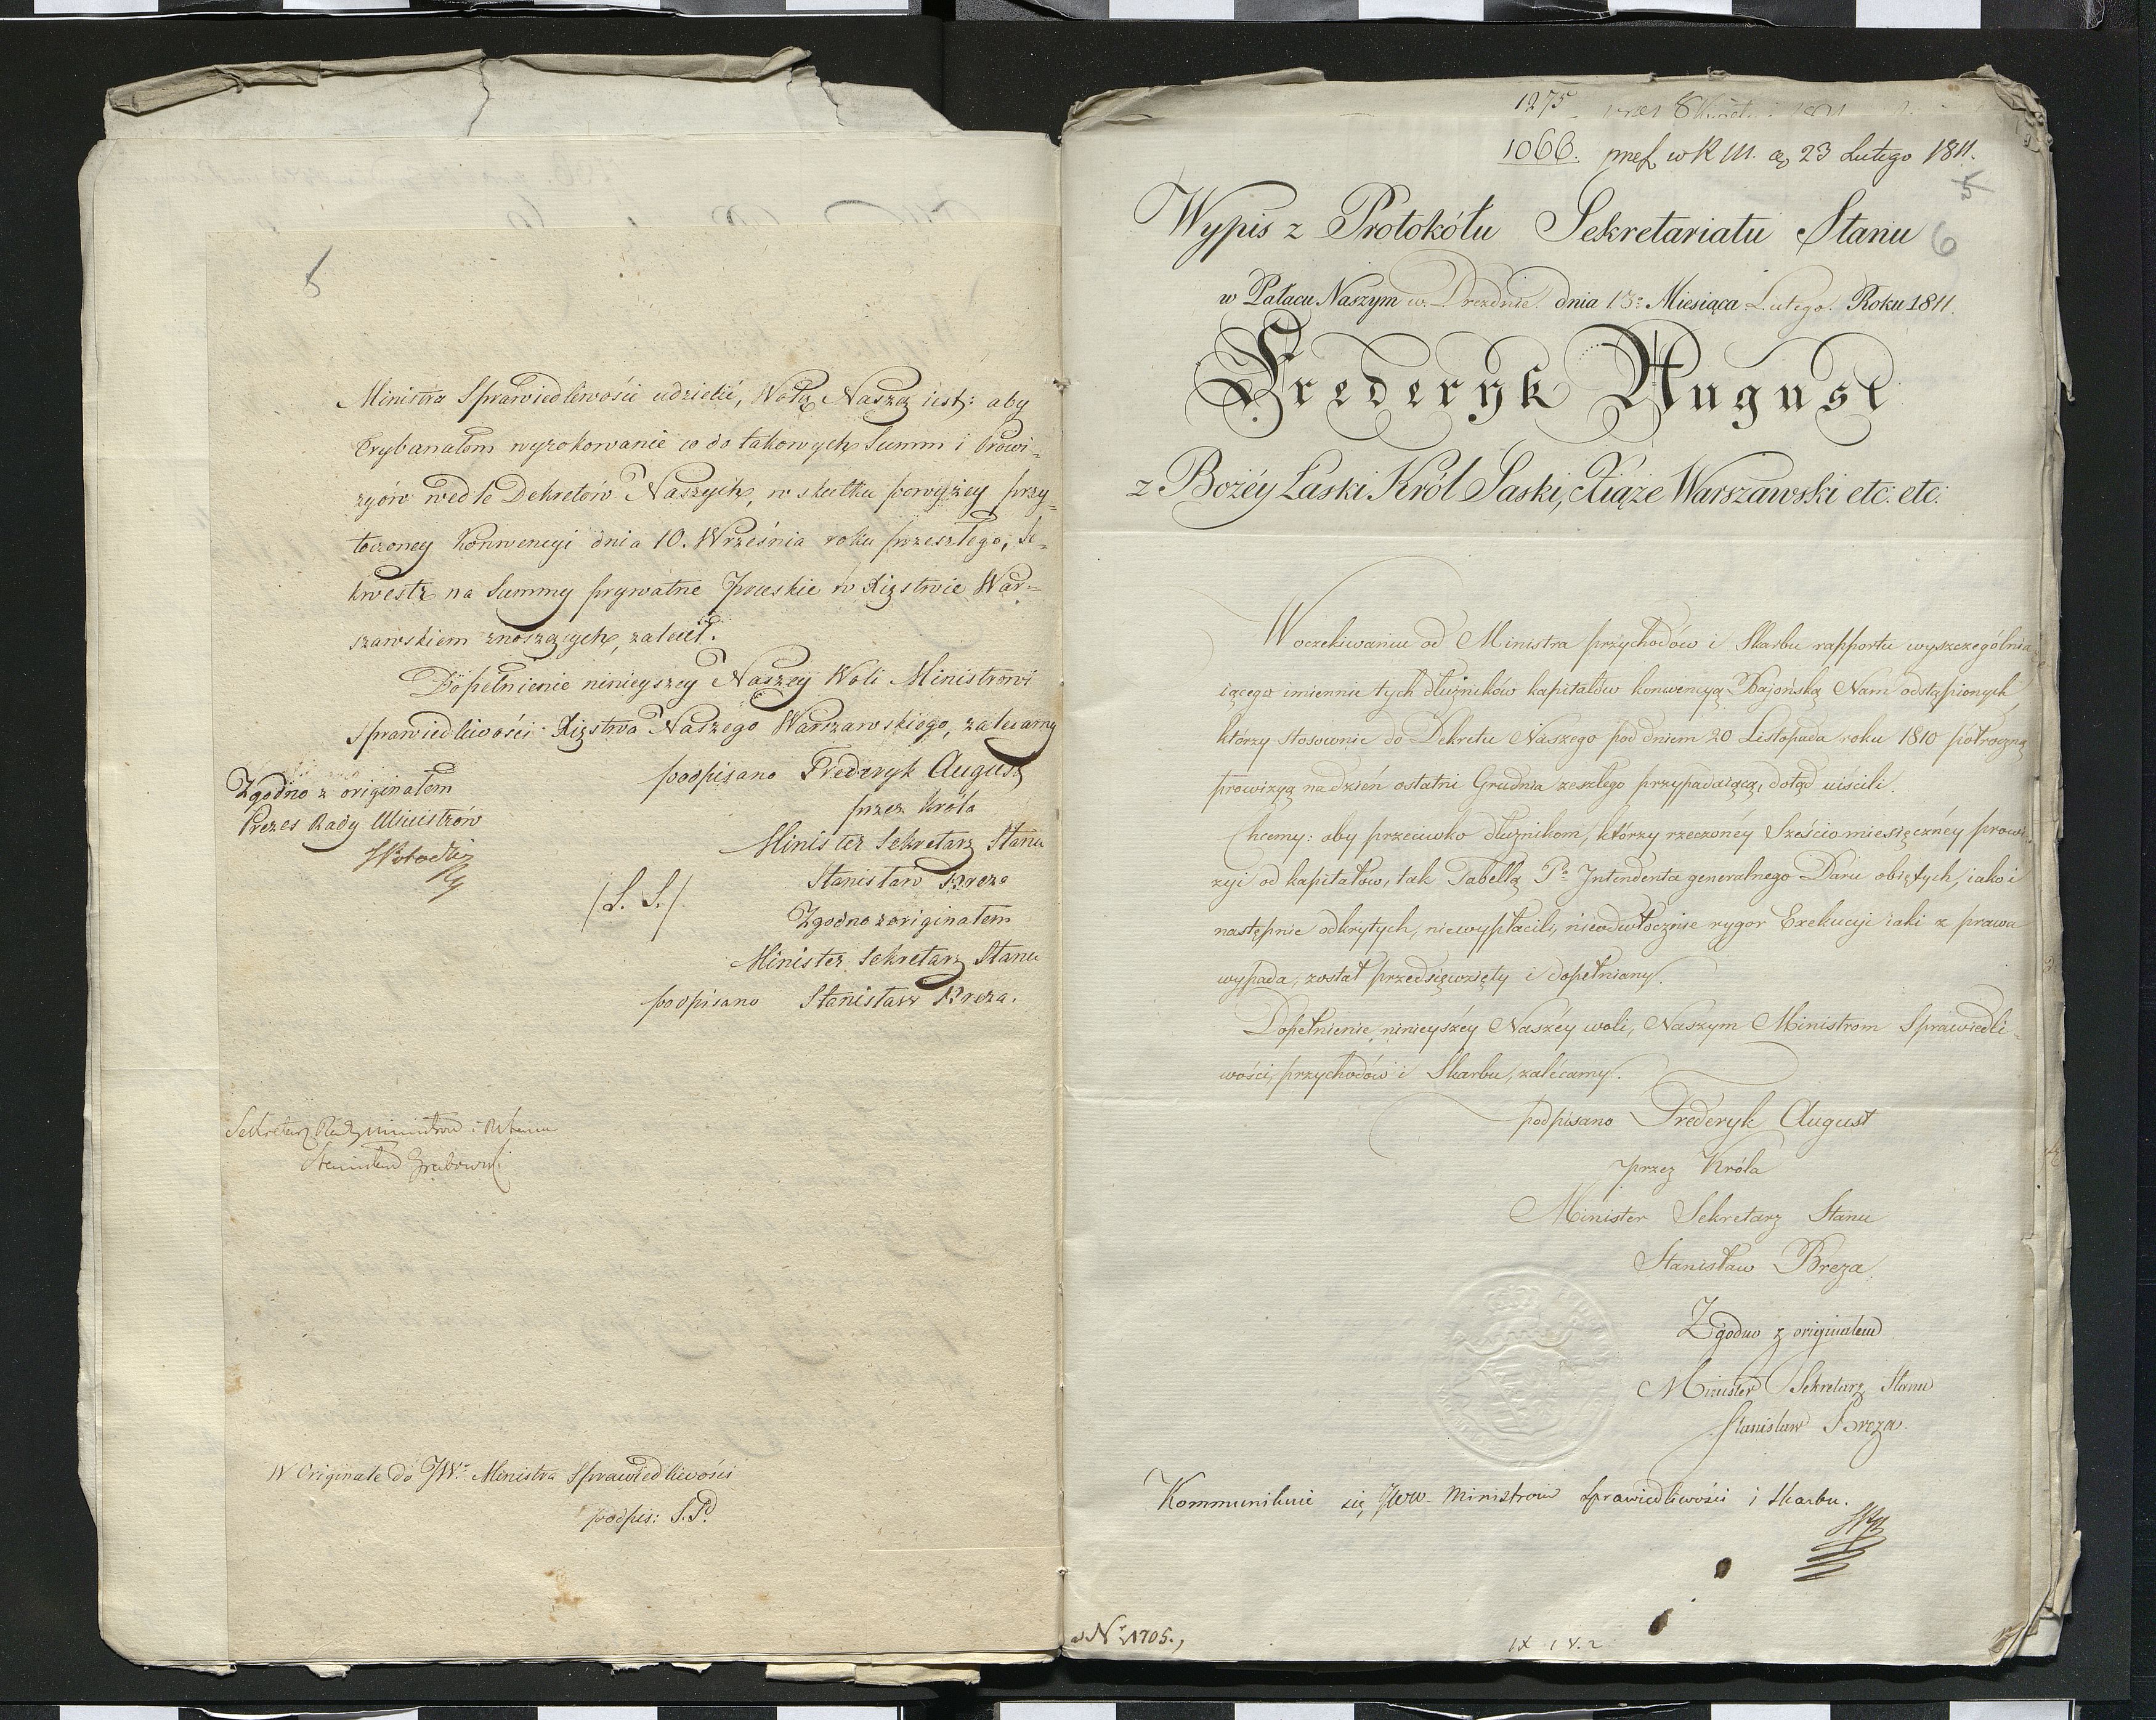 5
Ministra Sprawiedliwości udzielić, Wolą Naszą iest: aby
Trybunałom wyrokowanie co do takowych Summ i Prowi-
zyów wedle Dekretów Naszych, w skutku powyżey przy-
toczoney Konwencyi dnia 10. Września roku przeszłego, Se-
kwestr na Summy prywatne Pruskie w Xięstwie War-
szawskiem znoszących, zalecił.
Dopełnienie ninieyszey Naszey Woli Ministrowi
Sprawiedliwości Xięstwa Naszego Warszawskiego, zalecamy
podpisano Frederyk August
przez Króla
Minister Sekretarz Stanu
Stanisław Breza
/L. S./
Zgodno z originałem
Minister Sekretarz Stanu
podpisano Stanisław Breza.
Zgodno z originałem
Prezes Rady Ministrów
Sekretarz Rady Ministrów i Stanu
Stanisław Grabowski
W Originale do JW. Ministra Sprawiedliwości
podpis: S.B.
1275
1066. w R M. 23 Lutego 1811.
5
6
Wypis z Protokółu Sekretariatu Stanu
w Pałacu Naszym w Dreźnie dnia 13: Miesiąca Lutego. Roku 1811.
Frederyk August
z Bożéy Łaski Król Saski, Xiąże Warszawski etc: etc:
W oczekiwaniu od Ministra przychodów i Skarbu rapportu wyszczególnia-
iącego imiennie tych dłużników kapitałów konwencyą Bajońską Nam odstąpionych,
którzy stosownie do Dekretu Naszego pod dniem 20 Listopada roku 1810 półroczną
prowizyą na dzień ostatni Grudnia zeszłego przypadaiącą, dotąd uiścili.
Chcemy: aby przeciwko dłużnikom, którzy rzeczonéy Sześciomiesięcznéy prowi-
zyi od kapitałów, tak Tabellą P. Intendenta generalnego Daru obiętych, iako i
następnie odkrytych, niewypłacili, nieodwłocznie rygor Exekucyi iaki z prawa
wypada, został przedsięwzięty i dopełniany.
Dopełnienie ninieyszéy Naszéy woli, Naszym Ministrom Sprawiedli-
wości, przychodów i Skarbu, zalécamy.
podpisano Frederyk August
przez Króla
Minister Sekretarz Stanu
Stanisław Breza.
Zgodno z originałem
Minister Sekretarz Stanu
Stanisław Breza.
Kommunikuie się JWW. Ministrom Sprawiedliwości i Skarbu.
N. 1705.,